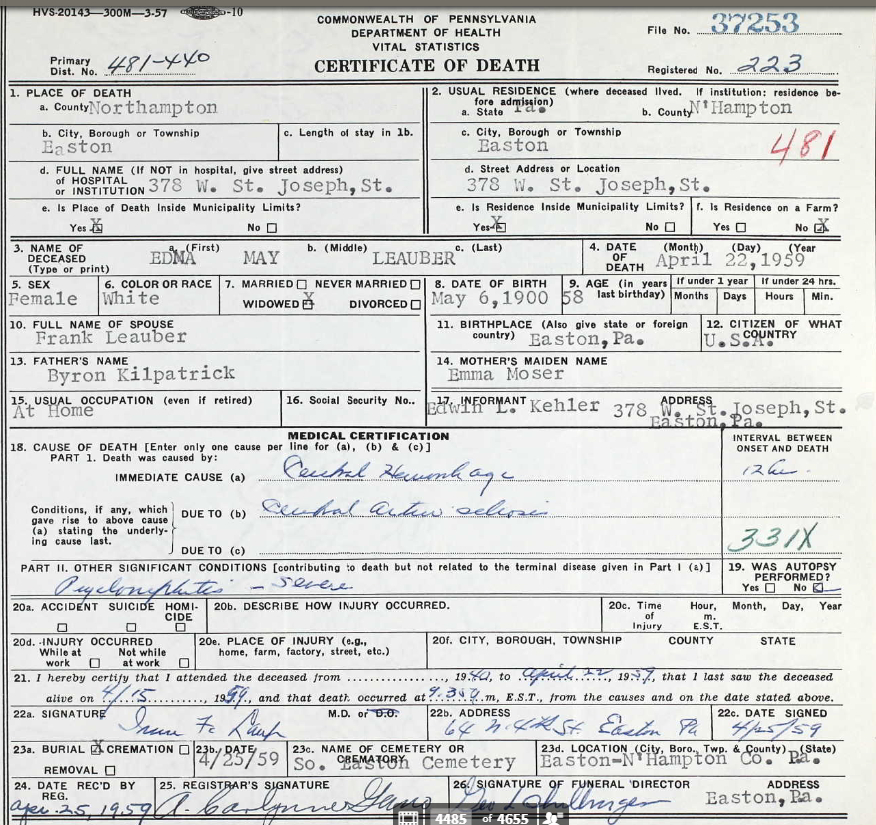 HVS-20143—300M—3-57 -10
COMMONWEALTH OF PENNSYLVANIA
DEPARTMENT OF HEALTH
VITAL STATISTICS
CERTIFICATE OF DEATH
File No. 37253
Primary Dist. No. 481-440
Registered No. 223
1. PLACE OF DEATH
a. County Northampton
b. City, Borough or Township
Easton
c. Length of stay in 1b.
d. FULL NAME (If NOT in hospital, give street address)
of HOSPITAL
or INSTITUTION 378 W. St. Joseph, St.
e. Is Place of Death Inside Municipality Limits?
Yes X No
2. USUAL RESIDENCE (where deceased lived. If institution: residence be-
fore admission)
a. State Pa. b. County N'Hampton
c. City, Borough or Township
Easton
481
d. Street Address or Location
378 W. St. Joseph, St.
e. Is Residence Inside Municipality Limits?
Yes X No
f. Is Residence on a Farm?
Yes No X
3. NAME OF DECEASED (Type or print)
a. (First) b. (Middle) c. (Last)
EDNA MAY LEAUBER
4. DATE OF DEATH (Month) (Day) (Year
April 22,1959
5. SEX
Female
6. COLOR OR RACE
White
7. MARRIED NEVER MARRIED
WIDOWED X DIVORCED
8. DATE OF BIRTH
May 6,1900
9. AGE (in years last birthday)
58
If under 1 year
Months Days
If under 24 hrs.
Hours Min.
10. FULL NAME OF SPOUSE
Frank Leauber
11. BIRTHPLACE (Also give state or foreign country)
Easton,Pa.
12. CITIZEN OF WHAT COUNTRY
U.S.A.
13. FATHER'S NAME
Byron Kilpatrick
14. MOTHER'S MAIDEN NAME
Emma Moser
15. USUAL OCCUPATION (even if retired)
At Home
16. Social Security No..
17. INFORMANT ADDRESS
Edwin L. Kehler 378 W. St.Joseph, St.
Easton,Pa.
MEDICAL CERTIFICATION
18. CAUSE OF DEATH [Enter only one cause per line for (a), (b) & (c)]
PART 1. Death was caused by:
INTERVAL BETWEEN ONSET AND DEATH
IMMEDIATE CAUSE (a)
Conditions, if any, which
gave rise to above cause
(a) stating the underly-
ing cause last.
DUE TO (b)
DUE TO (c)
331X
PART II. OTHER SIGNIFICANT CONDITIONS [contributing to death but not related to the terminal disease given in Part I (a)]
Severe
19. WAS AUTOPSY PERFORMED?
Yes No
20a. ACCIDENT SUICIDE HOMI-
CIDE
20b. DESCRIBE HOW INJURY OCCURRED.
20c. Time of Injury Hour, m. E.S.T. Month, Day, Year
20d. INJURY OCCURRED
While at work Not while at work
20e. PLACE OF INJURY (e.g.,
home, farm, factory, street, etc.)
20f. CITY, BOROUGH, TOWNSHIP COUNTY STATE
21. I hereby certify that I attended the deceased from , 19 , to April 22, 1959, that I last saw the deceased
alive on 4/15 , 1959, and that death occurred at m, E.S.T., from the causes and on the date stated above.
22a. SIGNATURE M.D. or D.O.
22b. ADDRESS
64 N. 4th St. Easton Pa
22c. DATE SIGNED
4/25/59
23a. BURIAL X CREMATION
REMOVAL
23b. DATE
4/25/59
23c. NAME OF CEMETERY OR CREMATORY
So. Easton Cemetery
23d. LOCATION (City, Boro., Twp. & County) (State)
Easton-N'Hampton Co. Pa.
24. DATE REC'D BY REG.
Apr. 25, 1959
25. REGISTRAR'S SIGNATURE
26. SIGNATURE OF FUNERAL DIRECTOR ADDRESS
Easton,Pa.
4485 of 4655